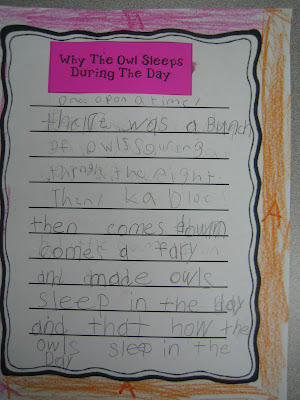 Why The Owl Sleeps
During The Day
once upon a time,
there was a Bunch
of owls souring
through the night.
Then, ka
then comes down
comes a fary
and made owls
sleep in the day
and that how the
owls sleep in the
Day
A
A